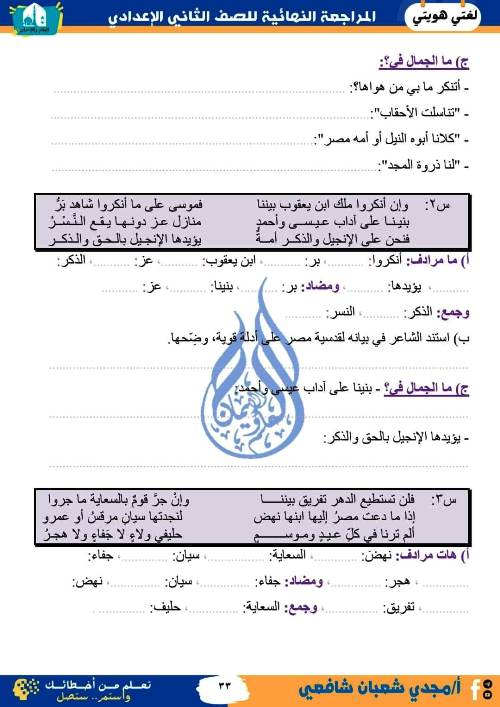 لغتي هويتي
المراجعة النهائية للصف الثاني الإعدادي
ج) ما الجمال في؟:
- أتنكر ما بي من هواها؟:
- "تناسلت الأحقاب":
- "كلانا أبوه النيل أو أمه مصر":
- "لنا ذروة المجد":
س٢: وإن أنكروا ملك ابن يعقوب بيننا فموسى على ما أنكروا شاهد بَرُّ
بنينا على آداب عيسى وأحمدٍ منازل عز دونها يقع النَّسْرُ
فنحن على الإنجيل والذكر أمةٌ يؤيدها الإنجيل بالحق والذكر
أ) ما مرادف: أنكروا: ، بر: ، ابن يعقوب: ، عز: ، الذكر:
، يؤيدها: ، ومضاد: بر: ، بنينا: ، عز:
وجمع: الذكر: ، النسر:
ب) استند الشاعر في بيانه لقدسية مصر على أدلة قوية، وضّحها.
ج) ما الجمال في؟ - بنينا على آداب عيسى وأحمد:
- يؤيدها الإنجيل بالحق والذكر:
س٣: فلن تستطيع الدهر تفريق بيننا وإنْ جرَّ قومٌ بالسعاية ما جروا
إذا ما دعت مصرُ إليها ابنها نهض لنجدتها سيانِ مرقسُ أو عمرو
ألم ترنا في كلِّ عيدٍ وموسمٍ حليفي ولاءٍ لا جَفاءٍ ولا هجرُ
أ) هات مرادف: نهض: ، السعاية: ، سيان: ، جفاء:
، هجر: ، ومضاد: جفاء: ، سيان: ، نهض:
، تفريق: ، وجمع: السعاية: ، حليف:
أ/مجدي شعبان شافعي
٣٣
تعلم من أخطائك
واستمر.. ستصل